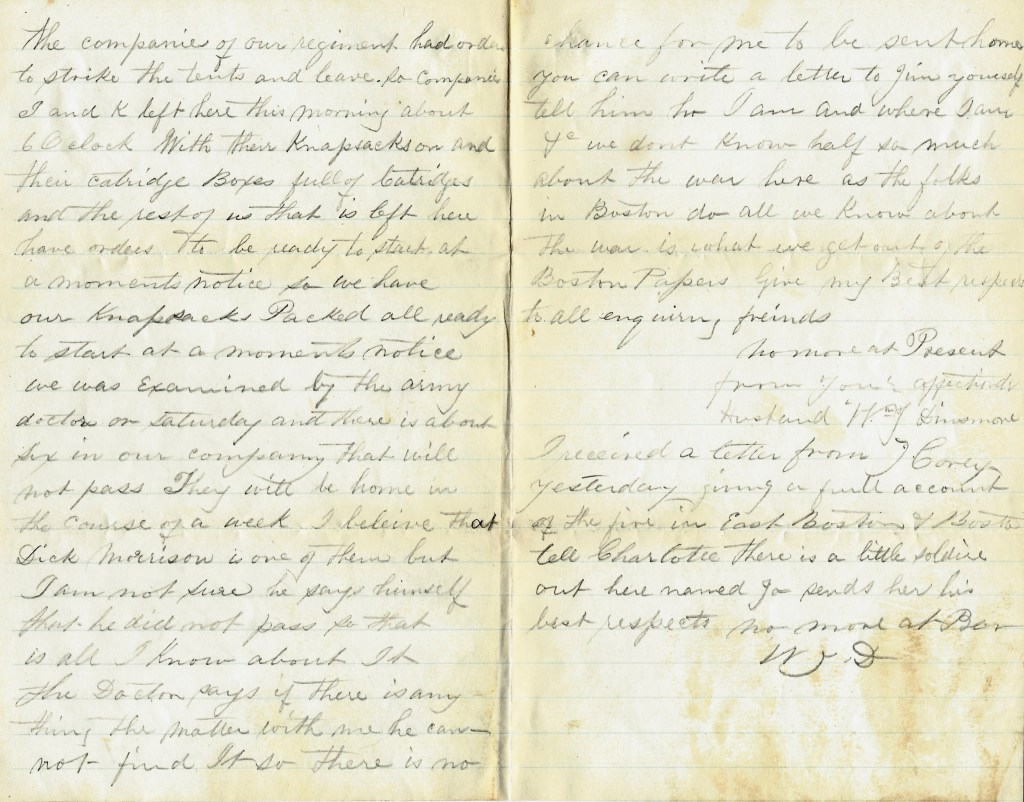 the companies of our regiment had orders
to strike the tents and leave. so Companies
I and K left here this morning about
6 O clock With their Knapsacks on and
their catridge Boxes full of Catridges
and the rest of us that is left here
have orders to be ready to start at
a moments notice so we have
our Knapsacks Packed all ready
to start at a moments notice
we was Examined by the army
doctor on saturday and there is about
six in our company that will
not pass They will be home in
the course of a week I beleive that
Dick Morrison is one of them but
I am not sure he says himself
that he did not pass so that
is all I Know about It
the Doctor says if there is any-
thing the matter with me he can-
not find It so there is no
chance for me to be sent home
you can write a letter to Jim yourself
tell him ho I am and where I am
&c we dont Know half so much
about the war here as the folks
in Boston do all we Know about
the war is what we get out of the
Boston Papers Give my Best respects
to all enquiring freinds
no more at Present
from your affectionate
Husband Dinsmore
I received a letter from J Corey
yesterday giving a full account
of the fire in East Boston & Boston
tell Charlotee there is a little soldire
out here named Jo sends her his
best respects no more at
W J. D